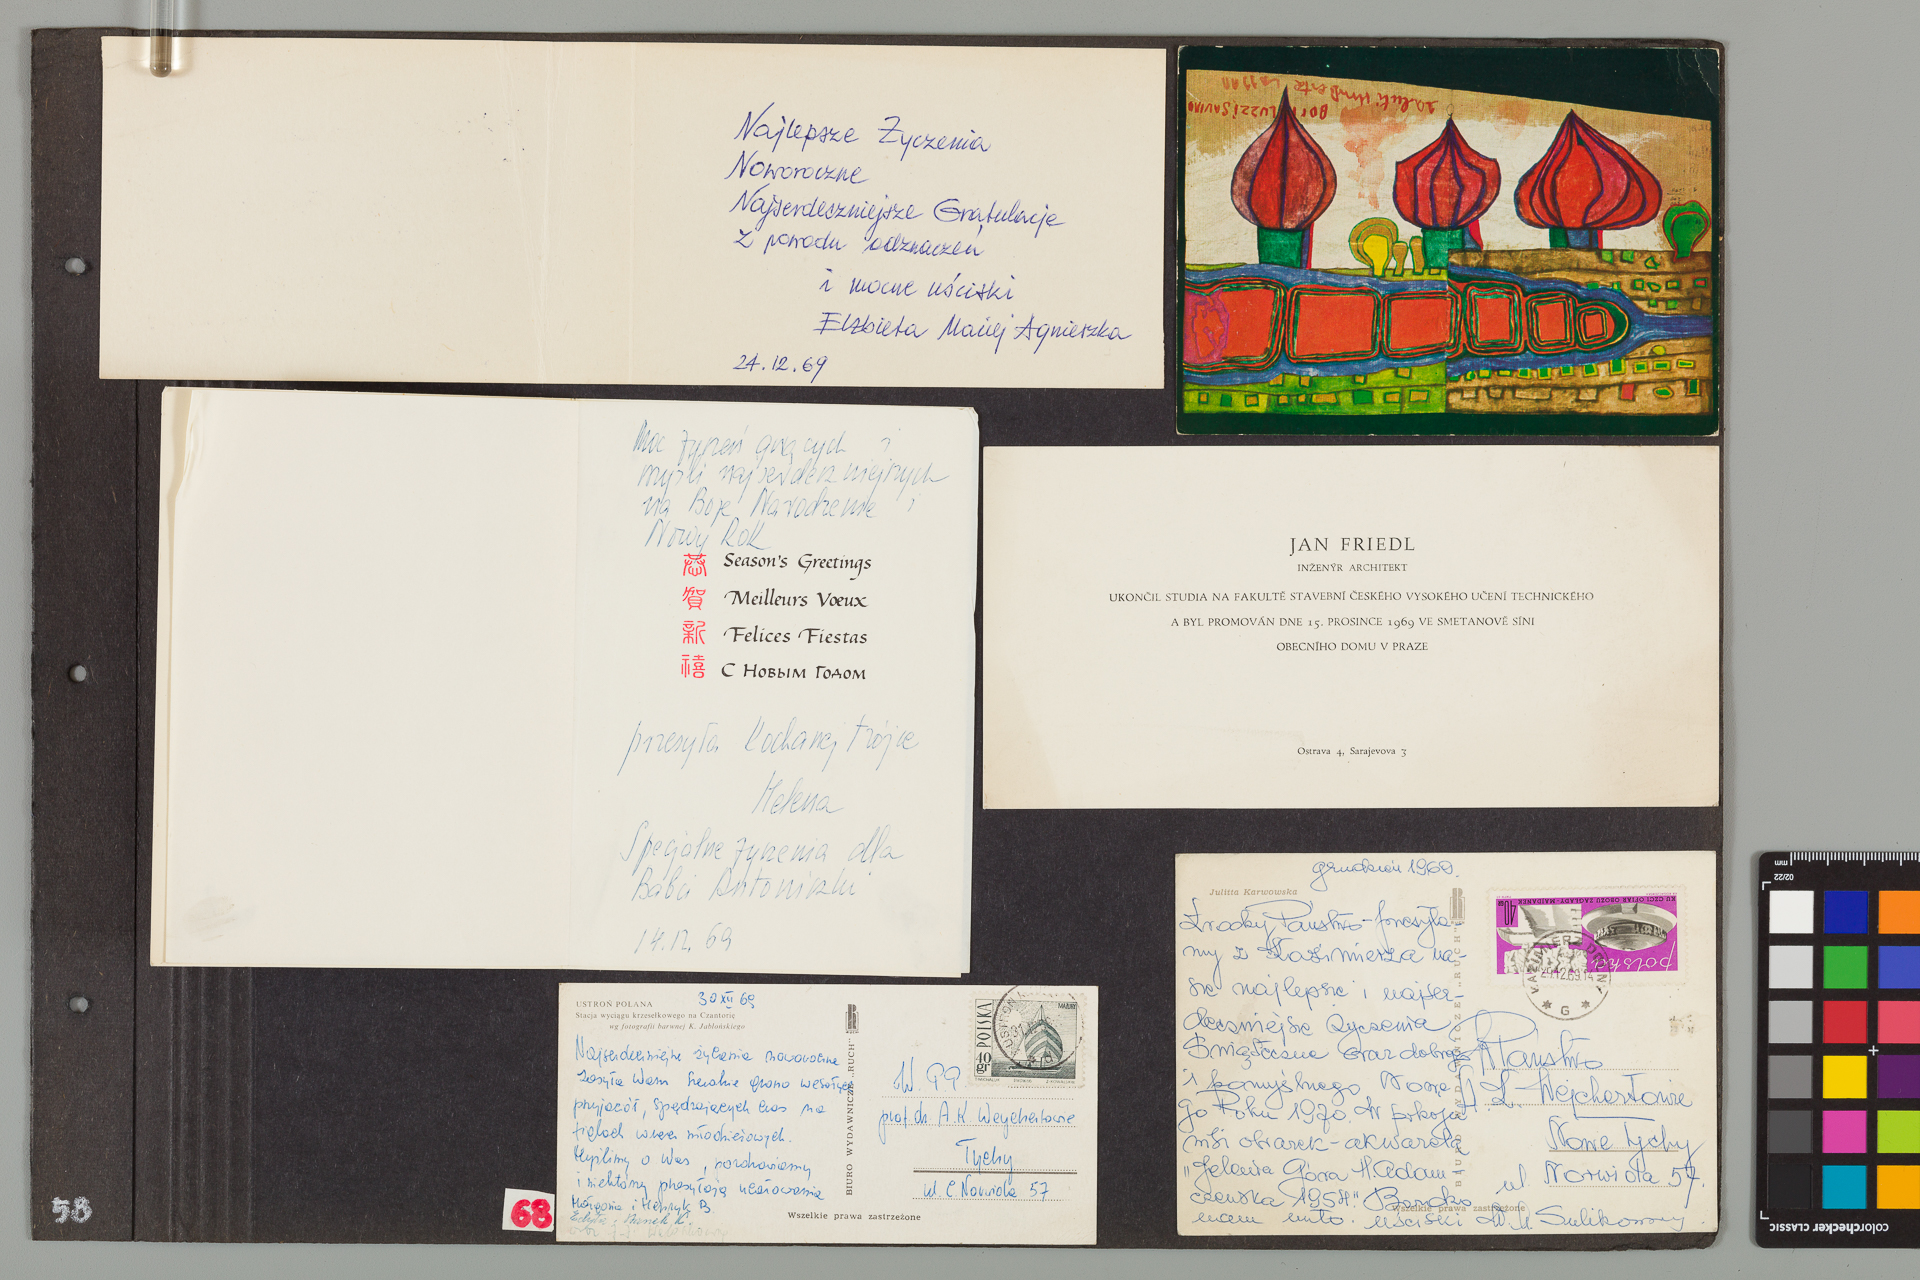 Najlepsze Życzenia
Noworoczne
Najserdeczniejsze Gratulacje
z powodu odznaczeń
i mocne uściski
Elżbieta Maciej Agnieszka
24.12.69
Moc życzeń gorących i
myśli najserdeczniejszych
na Boże Narodzenie i
Nowy Rok
恭 Season's Greetings
賀 Meilleurs Vœux
新 Felices Fiestas
禧 С Новым Годом
przesyła Kochanej trójce
Helena
Specjalne życzenia dla
Babci Antoniczki
14.12.69
JAN FRIEDL
INŽENÝR ARCHITEKT
UKONČIL STUDIA NA FAKULTĚ STAVEBNÍ ČESKÉHO VYSOKÉHO UČENÍ TECHNICKÉHO
A BYL PROMOVÁN DNE 15. PROSINCE 1969 VE SMETANOVĚ SÍNI
OBECNÍHO DOMU V PRAZE
Ostrava 4, Sarajevova 3
USTROŃ POLANA
30 XII 69
Stacja wyciągu krzesełkowego na Czantorię
wg fotografii barwnej K. Jabłońskiego
Najserdeczniejsze życzenia noworoczne
zasyła Wam grono wesołych
przyjaciół, spędzających czas na
młodzieżowych.
Myślimy o Was, pozdrawiamy
i niektórzy przesyłają ucałowania
Małgosia i Henryk B.
BIURO WYDAWNICZE „RUCH”
POLSKA
40 gr
W. PP.
prof. dr. A.K. Weychertowie
Tychy
ul. C. Norwida 57
Wszelkie prawa zastrzeżone
68
58
grudzień 1969.
Julitta Karwowska
Drodzy Państwo - przesyła-
my z Kazimierza na-
sze najlepsze i najser-
deczniejsze życzenia
Świąteczne oraz dobrego
i pomyślnego Nowe-
go Roku 1970. W pokoju
wisi obrazek - akwarela
"Jelenia Góra H. Adam-
czewska 1954" Bardzo
nam miło. uściski
Sulikowscy
polska
40
KU CZCI OFIAR OBOZU ZAGŁADY - MAJDANEK
KAZIMIERZ DOLNY
G
Państwo
Wejchertowie
Nowe Tychy
ul. Norwida 57.
Wszelkie prawa zastrzeżone
colorchecker CLASSIC
mm
02/22